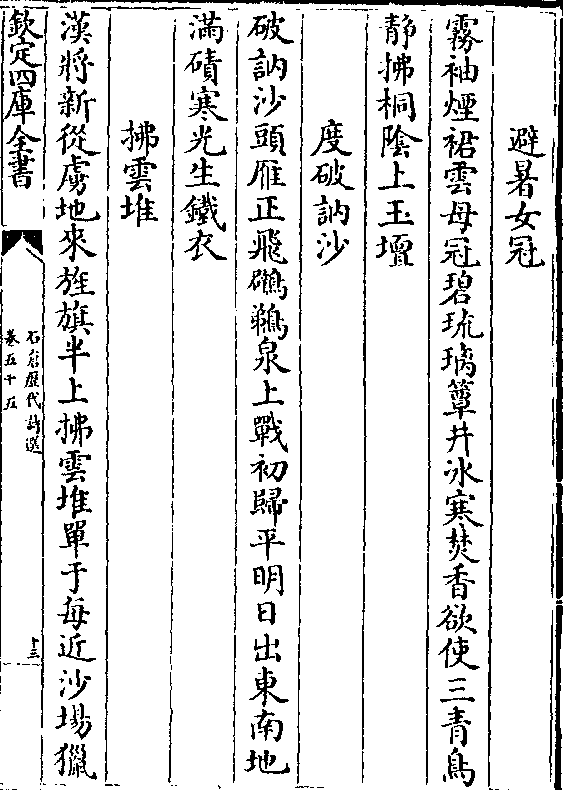 避暑女冠
霧袖煙裙雲母冠碧琉璃簟井氷寒焚香欲使三青鳥
静拂桐隂上玉壇
度破訥沙
破訥沙頭雁正飛鸊鵜泉上戰初歸平明日出東南地
滿磧寒光生鐵衣
拂雲堆
漢將新從虜地來旌旗半上拂雲堆單于每近沙場獵
欽定四庫全書
石倉歴代詩選
卷五十五
十三